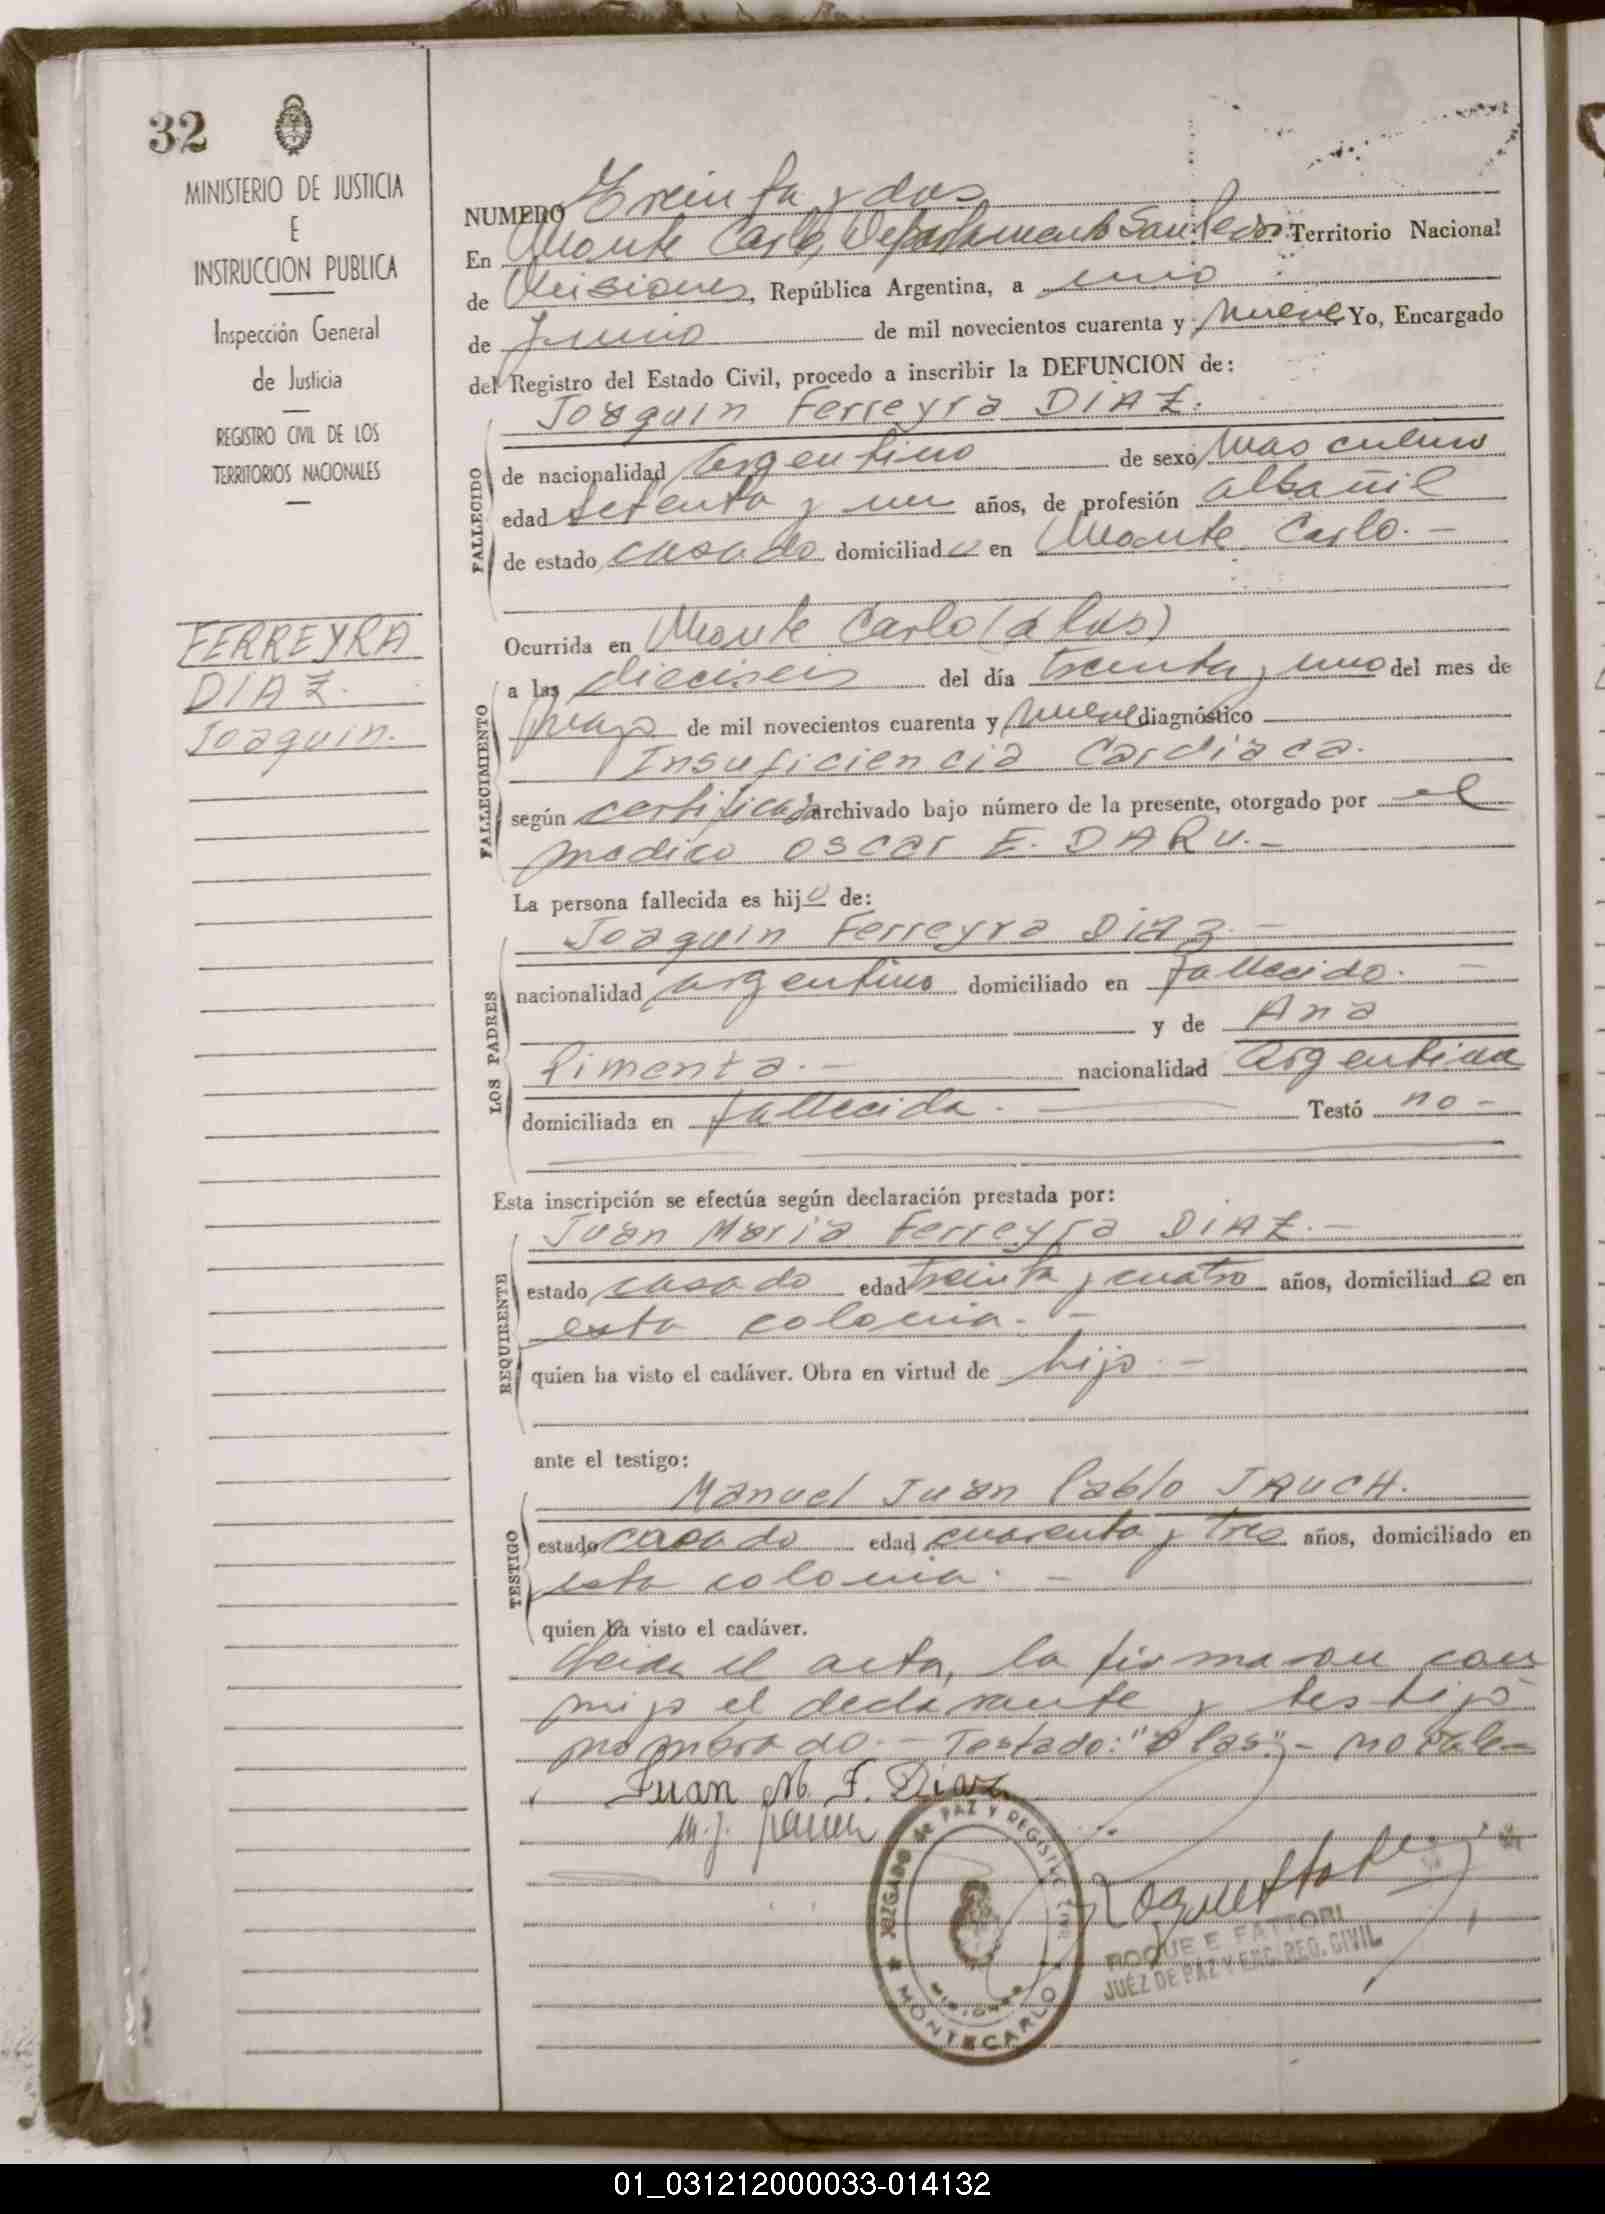 32
MINISTERIO DE JUSTICIA
E
INSTRUCCION PUBLICA
Inspección General
de Justicia
REGISTRO CIVIL DE LOS
TERRITORIOS NACIONALES
FERREYRA
DIAZ.
Joaquin.
NUMERO Treinta y dos
En Monte Carlo, Departamento San Pedro Territorio Nacional
de Misiones, República Argentina, a uno
de Junio de mil novecientos cuarenta y nueve Yo, Encargado
del Registro del Estado Civil, procedo a inscribir la DEFUNCION de:
Joaquin Ferreyra DIAZ.
FALLECIDO
de nacionalidad argentino de sexo masculino
edad setenta y un años, de profesión albañil
de estado casado domiciliado en Monte Carlo. -
Ocurrida en Monte Carlo (a las)
FALLECIMIENTO
a las dieciseis del día treinta y uno del mes de
mayo de mil novecientos cuarenta y nueve diagnóstico
Insuficiencia Cardiaca.
según certificado archivado bajo número de la presente, otorgado por el
medico oscar E. DARU. -
La persona fallecida es hijo de:
LOS PADRES
Joaquin Ferreyra Diaz -
nacionalidad argentino domiciliado en fallecido. -
y de Ana
Pimenta. - nacionalidad argentina
domiciliada en fallecida. Testó no -
Esta inscripción se efectúa según declaración prestada por:
REQUIRENTE
Juan Maria Ferreyra DIAZ. -
estado casado edad treinta y cuatro años, domiciliado en
esta colonia. -
quien ha visto el cadáver. Obra en virtud de hijo. -
ante el testigo:
TESTIGO
Manuel Juan Pablo JAUCH.
estado casado edad cuarenta y tres años, domiciliado en
esta colonia. -
quien ha visto el cadáver.
Leida el acta, la firmaron con
migo el declarante y testigo
nombrado. - Testado: "a las". - no vale -
Juan M. F. Diaz
M. J. Jauch
JUZGADO de PAZ Y REGISTRO CIVIL
MISIONES
MONTECARLO
ROQUE E FATTORI
JUEZ DE PAZ Y ENC. REG. CIVIL
01_031212000033-014132